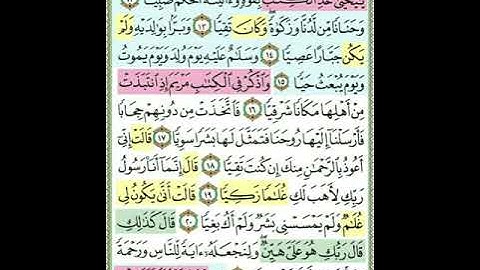 يَـٰيَحْيَىٰ خُذِ ٱلْكِتَـٰبَ بِقُوَّةٍ وَءَاتَيْنَـٰهُ ٱلْحُكْمَ صَبِيًّا ١٢
وَحَنَانًا مِّن لَّدُنَّا وَزَكَوٰةً وَكَانَ تَقِيًّا ١٣ وَبَرًّۢا بِوَٰلِدَيْهِ وَلَمْ
يَكُن جَبَّارًا عَصِيًّا ١٤ وَسَلَـٰمٌ عَلَيْهِ يَوْمَ وُلِدَ وَيَوْمَ يَمُوتُ
وَيَوْمَ يُبْعَثُ حَيًّا ١٥ وَٱذْكُرْ فِى ٱلْكِتَـٰبِ مَرْيَمَ إِذِ ٱنتَبَذَتْ
مِنْ أَهْلِهَا مَكَانًا شَرْقِيًّا ١٦ فَٱتَّخَذَتْ مِن دُونِهِمْ حِجَابًا
فَأَرْسَلْنَآ إِلَيْهَا رُوحَنَا فَتَمَثَّلَ لَهَا بَشَرًا سَوِيًّا ١٧ قَالَتْ إِنِّىٓ
أَعُوذُ بِٱلرَّحْمَـٰنِ مِنكَ إِن كُنتَ تَقِيًّا ١٨ قَالَ إِنَّمَآ أَنَا۠ رَسُولُ
رَبِّكِ لِأَهَبَ لَكِ غُلَـٰمًا زَكِيًّا ١٩ قَالَتْ أَنَّىٰ يَكُونُ لِى
غُلَـٰمٌ وَلَمْ يَمْسَسْنِى بَشَرٌ وَلَمْ أَكُ بَغِيًّا ٢٠ قَالَ كَذَٰلِكِ
قَالَ رَبُّكِ هُوَ عَلَىَّ هَيِّنٌ وَلِنَجْعَلَهُۥٓ ءَايَةً لِّلنَّاسِ وَرَحْمَةً